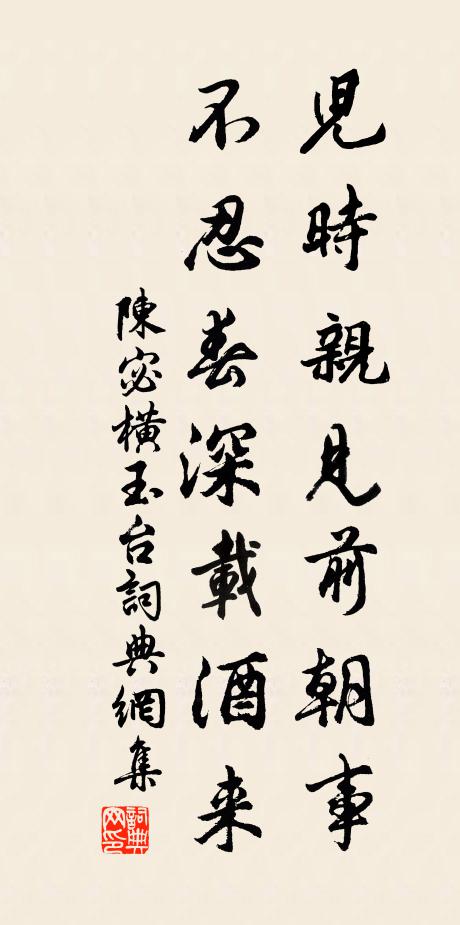 児時親見前朝事
不忍春深載酒来
陳宓橫玉台詞典網集
詞典网印